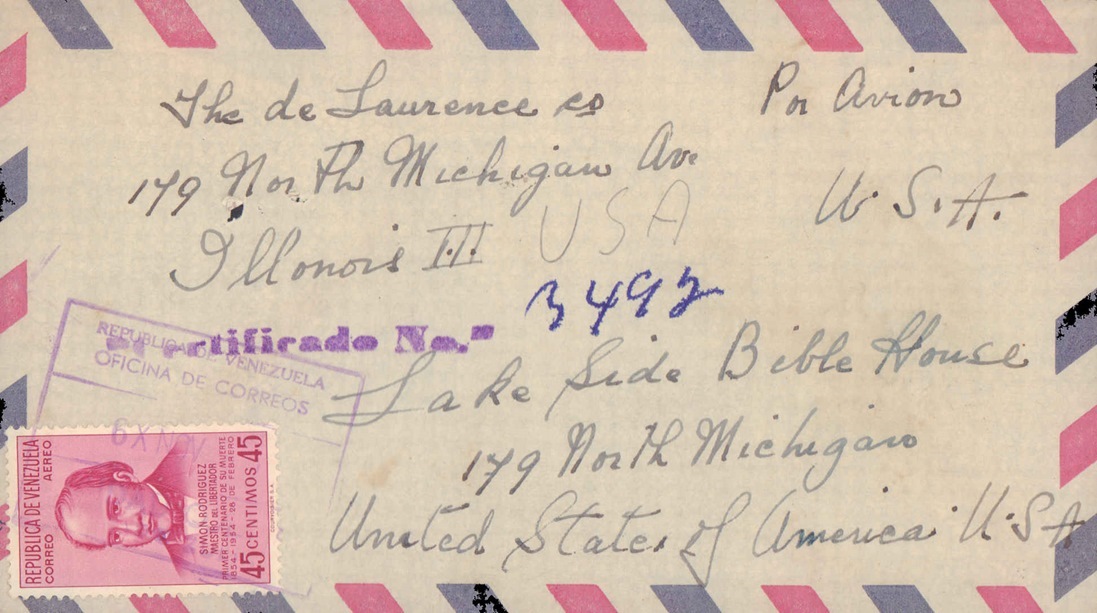 The de Laurence co
Por Avion
179 North Michigan Av.
U.S.A.
USA
Illonois Ill
3492
Certificado No."
REPUBLICA DE VENEZUELA
OFICINA DE CORREOS
Lake Side Bible House
179 North Michigan
United States of America U.S.A
REPUBLICA DE VENEZUELA
CORREO AEREO
SIMON RODRIGUEZ
MAESTRO DEL LIBERTADOR
PRIMER CENTENARIO DE SU MUERTE
1854-1954-28 DE FEBRERO
45 CENTIMOS 45